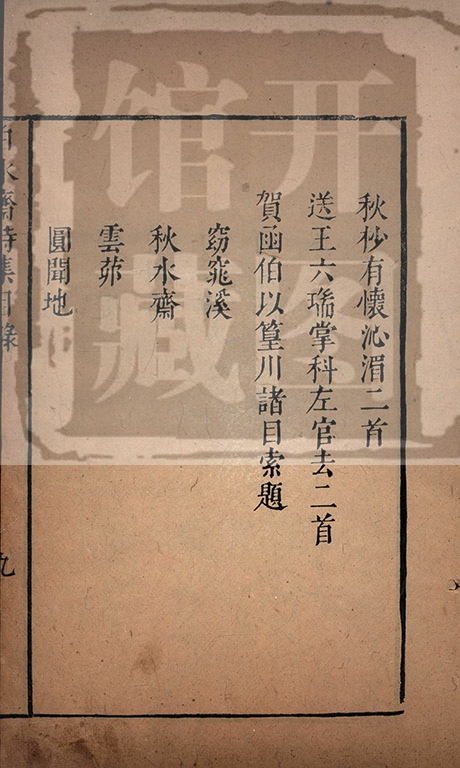 秋杪有懷沁湄二首
送王六瑞掌科左官去二首
賀函伯以篁川諸目索題
窈窕溪
秋水齋
雲茆
圓聞地
白水齋詩集目錄
九
开图
馆藏